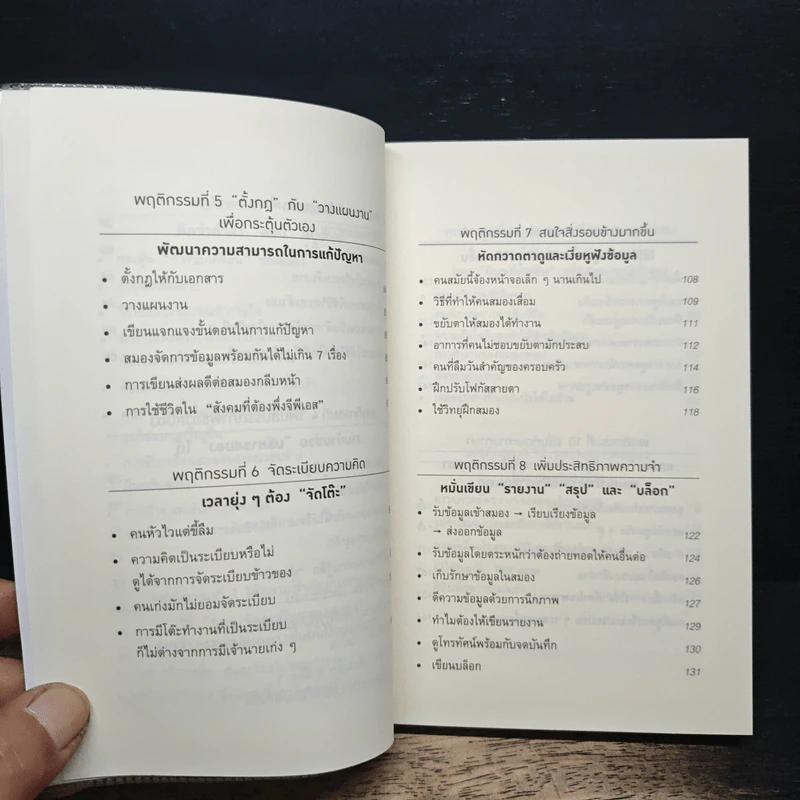 พฤติกรรมที่ 5 “ตั้งกฎ” กับ “วางแผนงาน”
เพื่อกระตุ้นตัวเอง
พัฒนาความสามารถในการแก้ปัญหา
• ตั้งกฎให้กับเอกสาร
• วางแผนงาน
• เขียนแจกแจงขั้นตอนในการแก้ปัญหา
• สมองจัดการข้อมูลพร้อมกันได้ไม่เกิน 7 เรื่อง
• การเขียนส่งผลดีต่อสมองกลีบหน้า
• การใช้ชีวิตใน “สังคมที่ต้องพึ่งจีพีเอส”
พฤติกรรมที่ 6 จัดระเบียบความคิด
เวลายุ่ง ๆ ต้อง “จัดโต๊ะ”
• คนหัวไวแต่ขี้ลืม
• ความคิดเป็นระเบียบหรือไม่
ดูได้จากการจัดระเบียบข้าวของ
• คนเก่งมักไม่ยอมจัดระเบียบ
• การมีโต๊ะทำงานที่เป็นระเบียบ
ก็ไม่ต่างจากการมีเจ้านายเก่ง ๆ
พฤติกรรมที่ 7 สนใจสิ่งรอบข้างมากขึ้น
หัดกวาดตาดูและเงี่ยหูฟังข้อมูล
• คนสมัยนี้จ้องหน้าจอเล็ก ๆ นานเกินไป 108
• วิธีที่ทำให้คนสมองเสื่อม 109
• ขยับตาให้สมองได้ทำงาน 111
• อาการที่คนไม่ชอบขยับตามักประสบ 112
• คนที่ลืมวันสำคัญของครอบครัว 114
• ฝึกปรับโฟกัสสายตา 116
• ใช้วิทยุฝึกสมอง 118
พฤติกรรมที่ 8 เพิ่มประสิทธิภาพความจำ
หมั่นเขียน “รายงาน” “สรุป” และ “บล็อก”
• รับข้อมูลเข้าสมอง → เรียบเรียงข้อมูล
→ ส่งออกข้อมูล 122
• รับข้อมูลโดยตระหนักว่าต้องถ่ายทอดให้คนอื่นต่อ 124
• เก็บรักษาข้อมูลในสมอง 126
• ตีความข้อมูลด้วยการนึกภาพ 127
• ทำไมต้องให้เขียนรายงาน 129
• ดูโทรทัศน์พร้อมกับจดบันทึก 130
• เขียนบล็อก 131